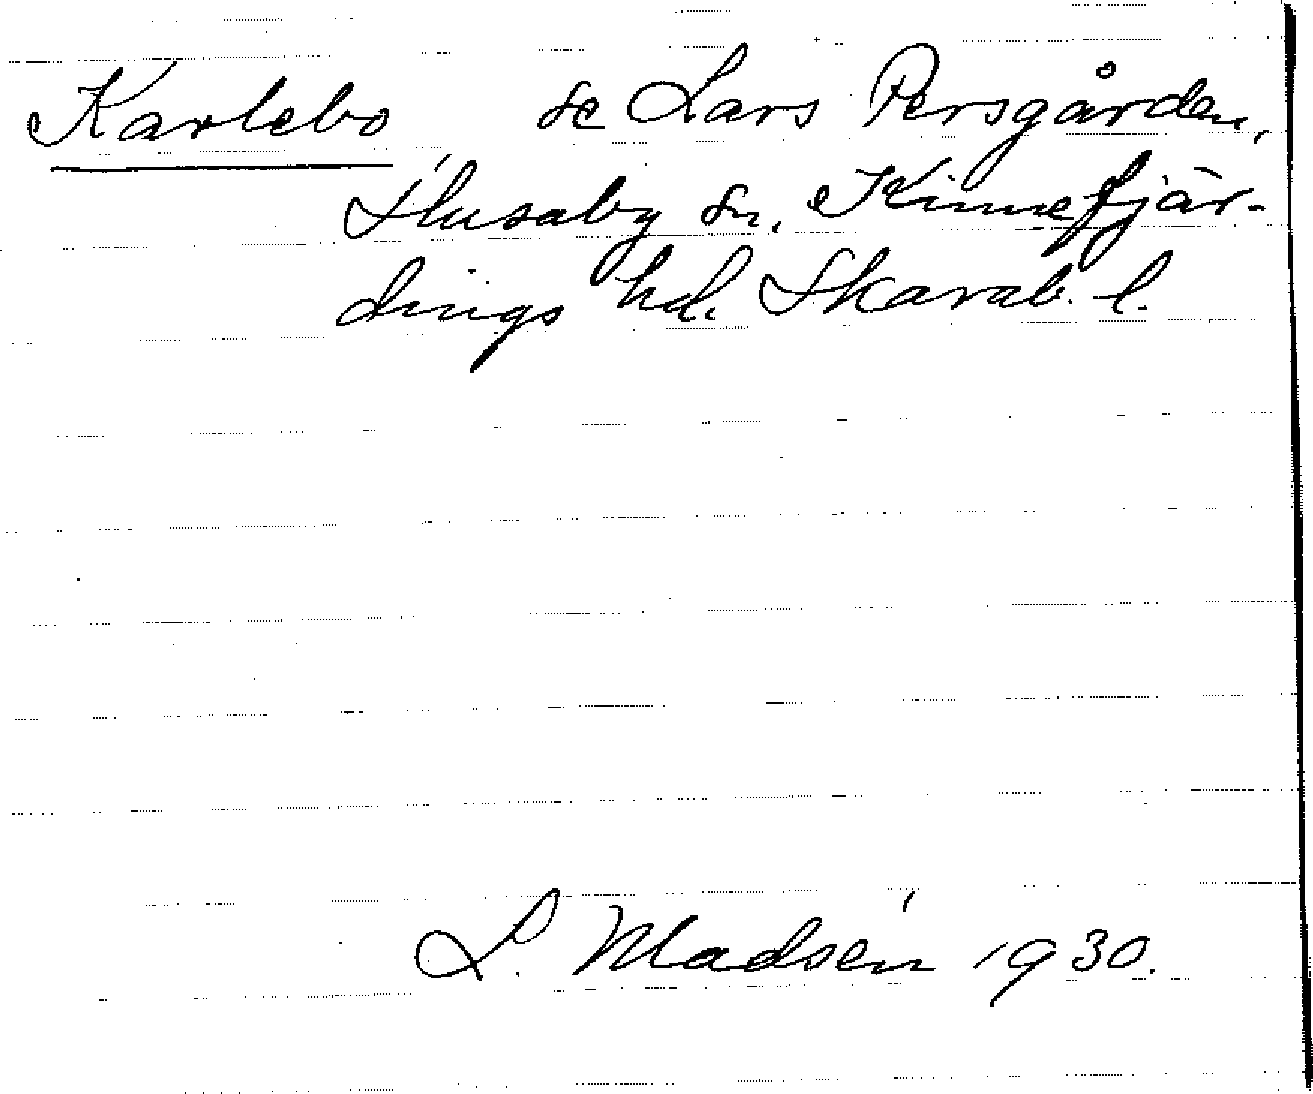 Karlebo se Lars Persgården,
Husaby sn, Kinnefjär-
dings hd. Skarab. l.
S. Madsén 1930.